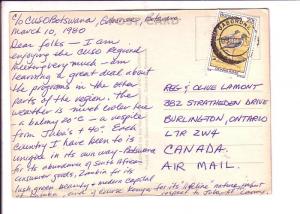 c/o CUSO Botswana, Gaborone, Botswana
March 10, 1980
Dear folks - I am
enjoying the CUSO Regional
Meeting very much - am
learning a great deal about
the programs in the other
parts of the region. The
weather is much cooler here
- a balmy 20°C - a respite
from Juba's + 40°. Each
country I have been to is
unique in its own way - Botswana
for its abundance of South African
consumer goods, Zambia for its
lush green beauty + modern capital
of Lusaka, and of course Kenya for its "lifeline"
respect to Juba.
POST CARD
GABORONE
REG & OLIVE LAMONT
382 STRATHEDEN DRIVE
BURLINGTON, ONTARIO
L7R 2W4
CANADA.
AIR MAIL.